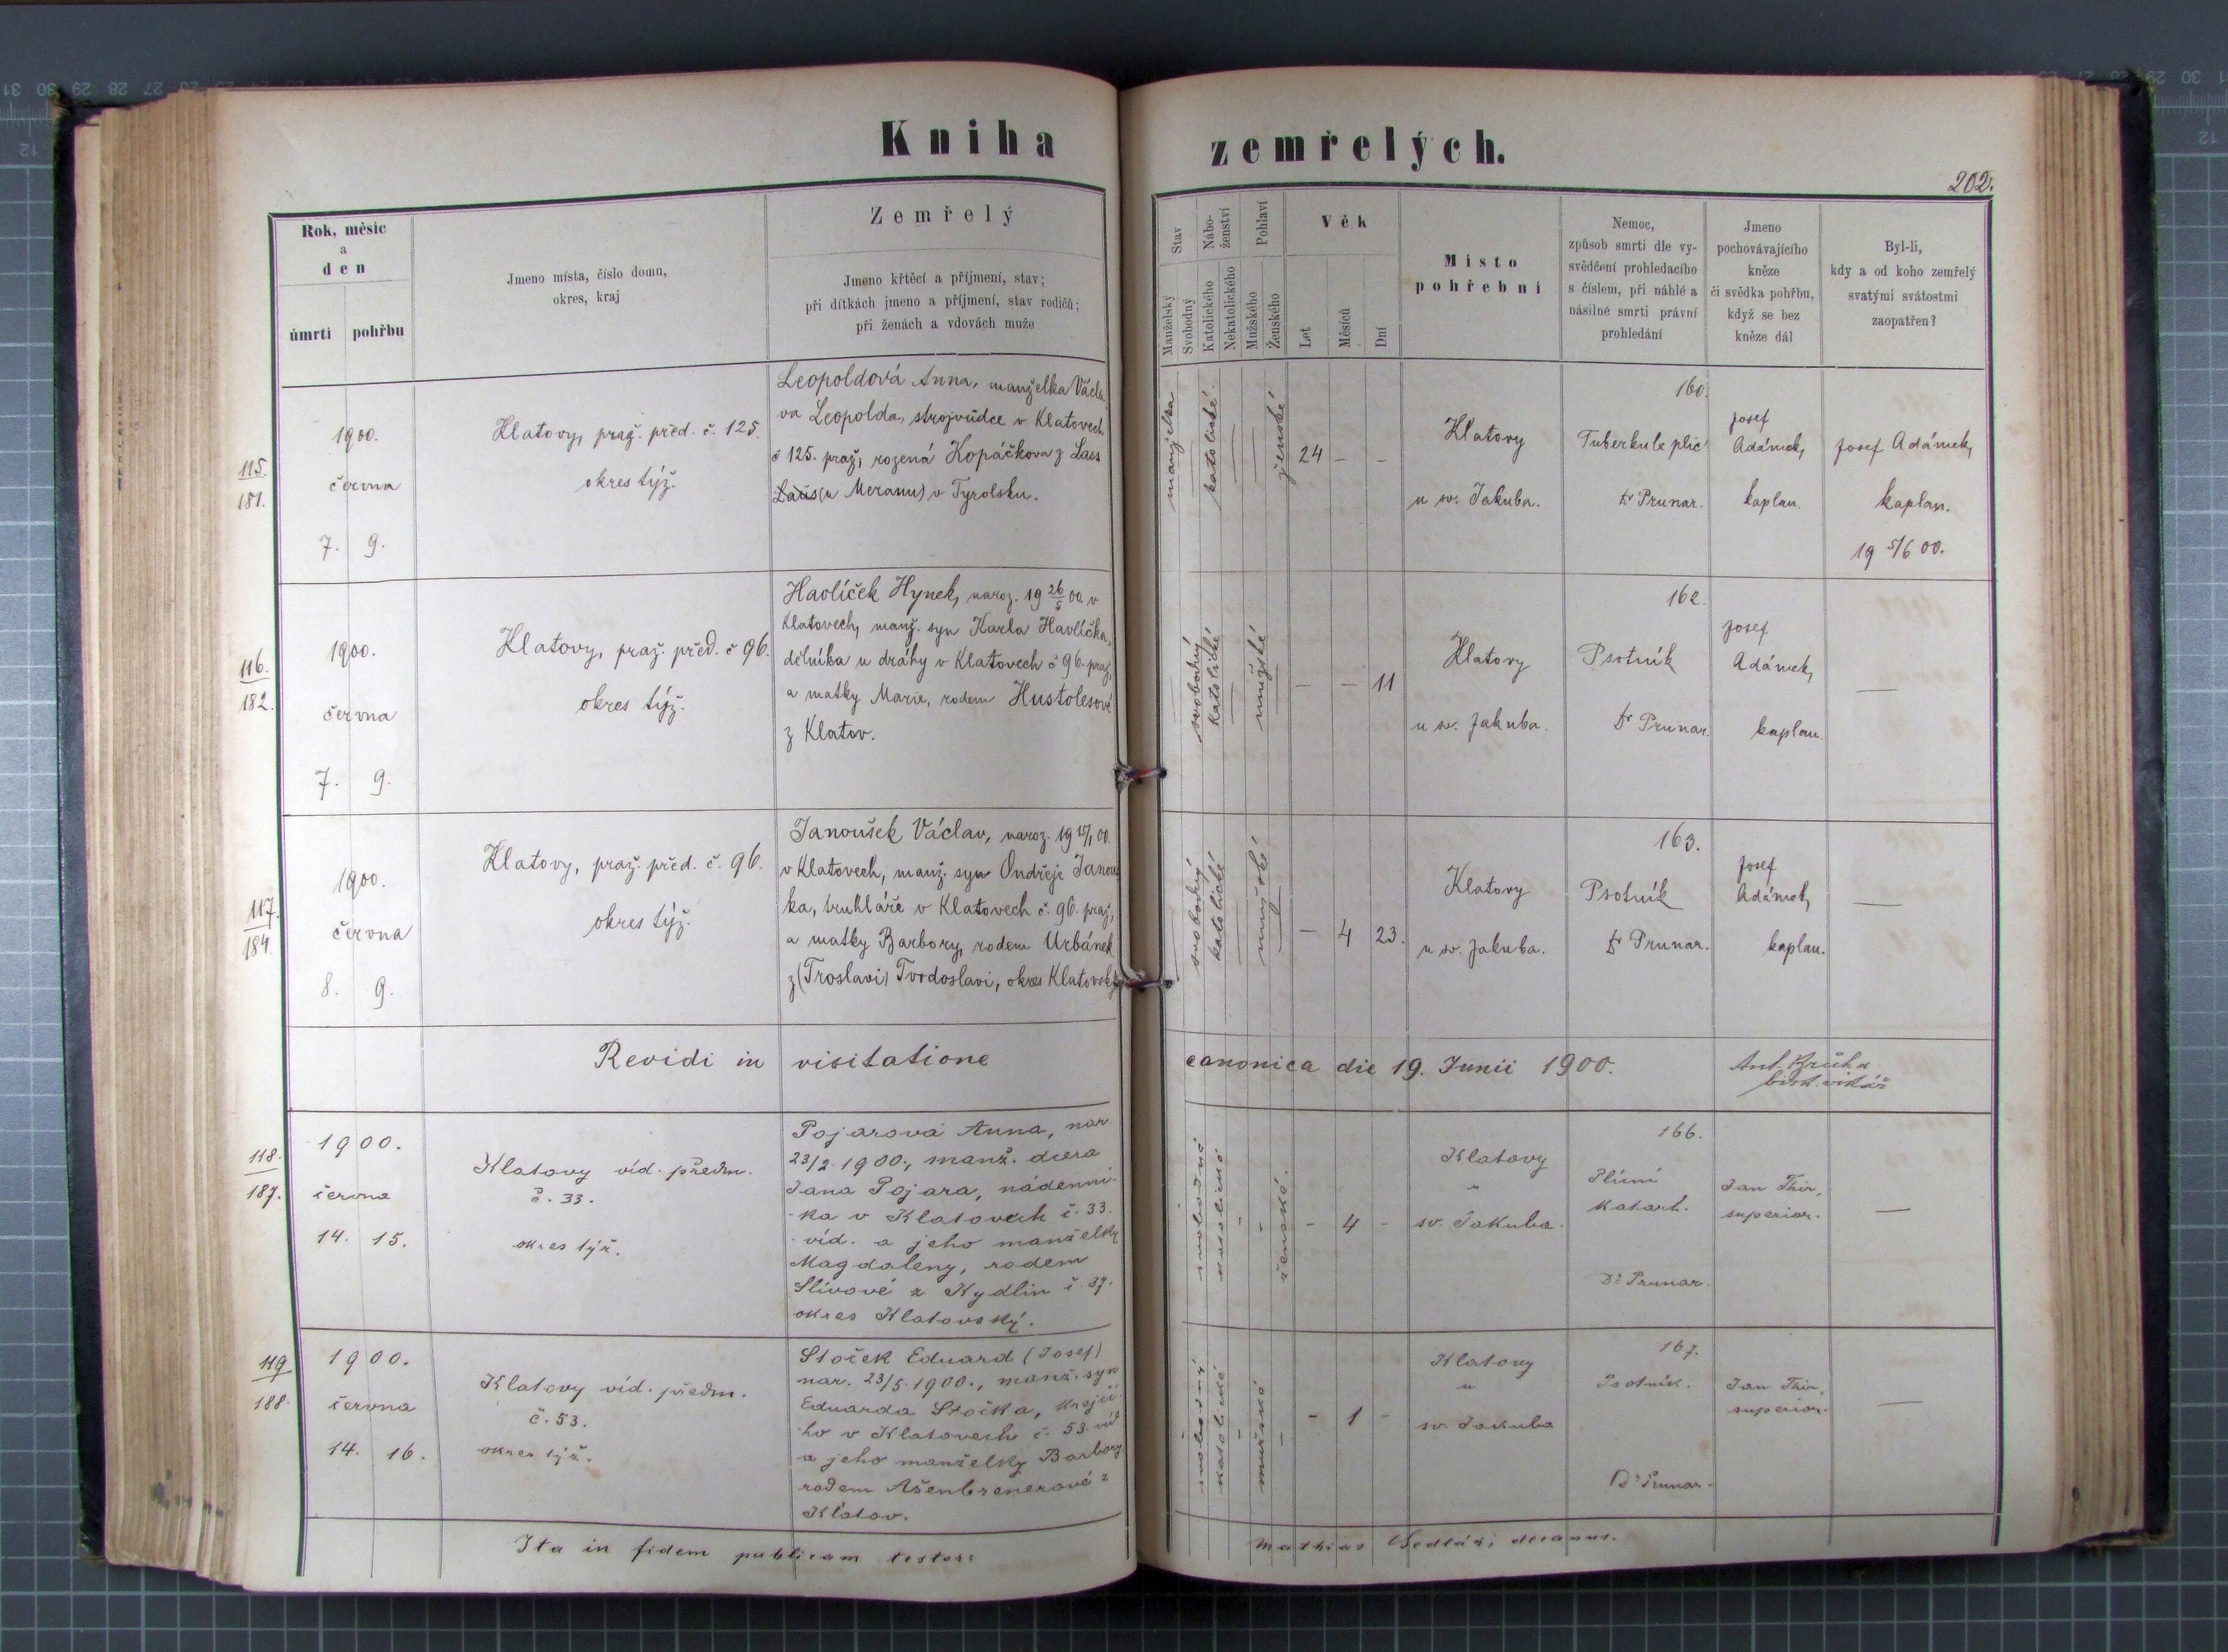 Kniha zemřelých.
202.
Rok, měsíc
a
den
úmrtí
pohřbu
Jmeno místa, číslo domu,
okres, kraj
Zemřelý
Jmeno křtěcí a příjmení, stav;
při dítkách jmeno a příjmení, stav rodičů;
při ženách a vdovách muže
Stav
Manželský
Svobodný
Nábo-
ženství
Katolického
Nekatolického
Pohlaví
Mužského
Ženského
Věk
Let
Měsíců
Dní
Místo
pohřební
Nemoc,
způsob smrti dle vy-
svědčení prohledacího
s číslem, při náhlé a
násilné smrti právní
prohledání
Jmeno
pochovávajícího
kněze
či svědka pohřbu,
když se bez
kněze dál
Byl-li,
kdy a od koho zemřelý
svatými svátostmi
zaopatřen?
115.
181.
1900.
června
7. 9.
Klatovy, praž. před. č. 125.
okres týž.
Leopoldová Anna, manželka Václa-
va Leopolda, strojvůdce v Klatovech
č 125. praž, rozená Kopáčkova z Lass
Laüs (u Meranu) v Tyrolsku.
manželka
katolické
ženské
24 - -
Klatovy
u sv. Jakuba.
160.
Tuberkule plic
Dr Prunar.
Josef
Adámek,
kaplan.
Josef Adámek,
kaplan.
19 5/6 00.
116.
182.
1900.
června
7. 9.
Klatovy, praž. před. č 96.
okres týž.
Havlíček Hynek, naroz. 19 26/5 00 v
Klatovech, manž. syn Karla Havlíčka,
dělníka u dráhy v Klatovech č 96. praž,
a matky Marie, rodem Hustolesové
z Klatov.
svobodný
katolické
mužské
- - 11
Klatovy
u sv. Jakuba.
162.
Psotník
Dr Prunar.
Josef
Adámek,
kaplan.
—
117.
184.
1900.
června
8. 9.
Klatovy, praž. před. č. 96.
okres týž.
Janoušek Václav, naroz. 19 15/1 00
v Klatovech, manž. syn Ondřeje Janouš
ka, truhláře v Klatovech č. 96. praž,
a matky Barbory, rodem Urbánek
z (Troslavi) Tvrdoslavi, okres Klatovský
svobodný
katolické
mužské
- 4 23.
Klatovy
u sv. Jakuba.
163.
Psotník
Dr Prunar.
Josef
Adámek,
kaplan.
—
Revidi in visitatione canonica die 19. Junii 1900.
118.
187.
1900.
června
14. 15.
Klatovy víd. předm.
č. 33.
okres týž.
Pojarová Anna, nar.
23/2. 1900., manž. dcera
Jana Pojara, nádenní-
ka v Klatovech č. 33.
víd. a jeho manželky
Magdaleny, rodem
Slívové z Kydlin č. 37.
okres Klatovský.
svobodné
katolické
ženské.
- 4 -
Klatovy
u
sv. Jakuba.
166.
Plicní
katarh.
Dr Prunar.
Jan Thir,
superior.
—
119
188.
1900.
června
14. 16.
Klatovy víd. předm.
č. 53.
okres týž.
Stoček Eduard (Josef)
nar. 23/5. 1900., manž. syn
Eduarda Stočka, krejčí-
ho v Klatovech č. 53. víd
a jeho manželky Barbory
rodem Ašenbrenerové z
Klatov.
svobodný
katolické
mužské
- 1 -
Klatovy
u
sv. Jakuba
167.
Psotník.
Dr Prunar.
Jan Thir,
superior.
—
Ita in fidem publicam testor: Mathias Sedlák, decanus.